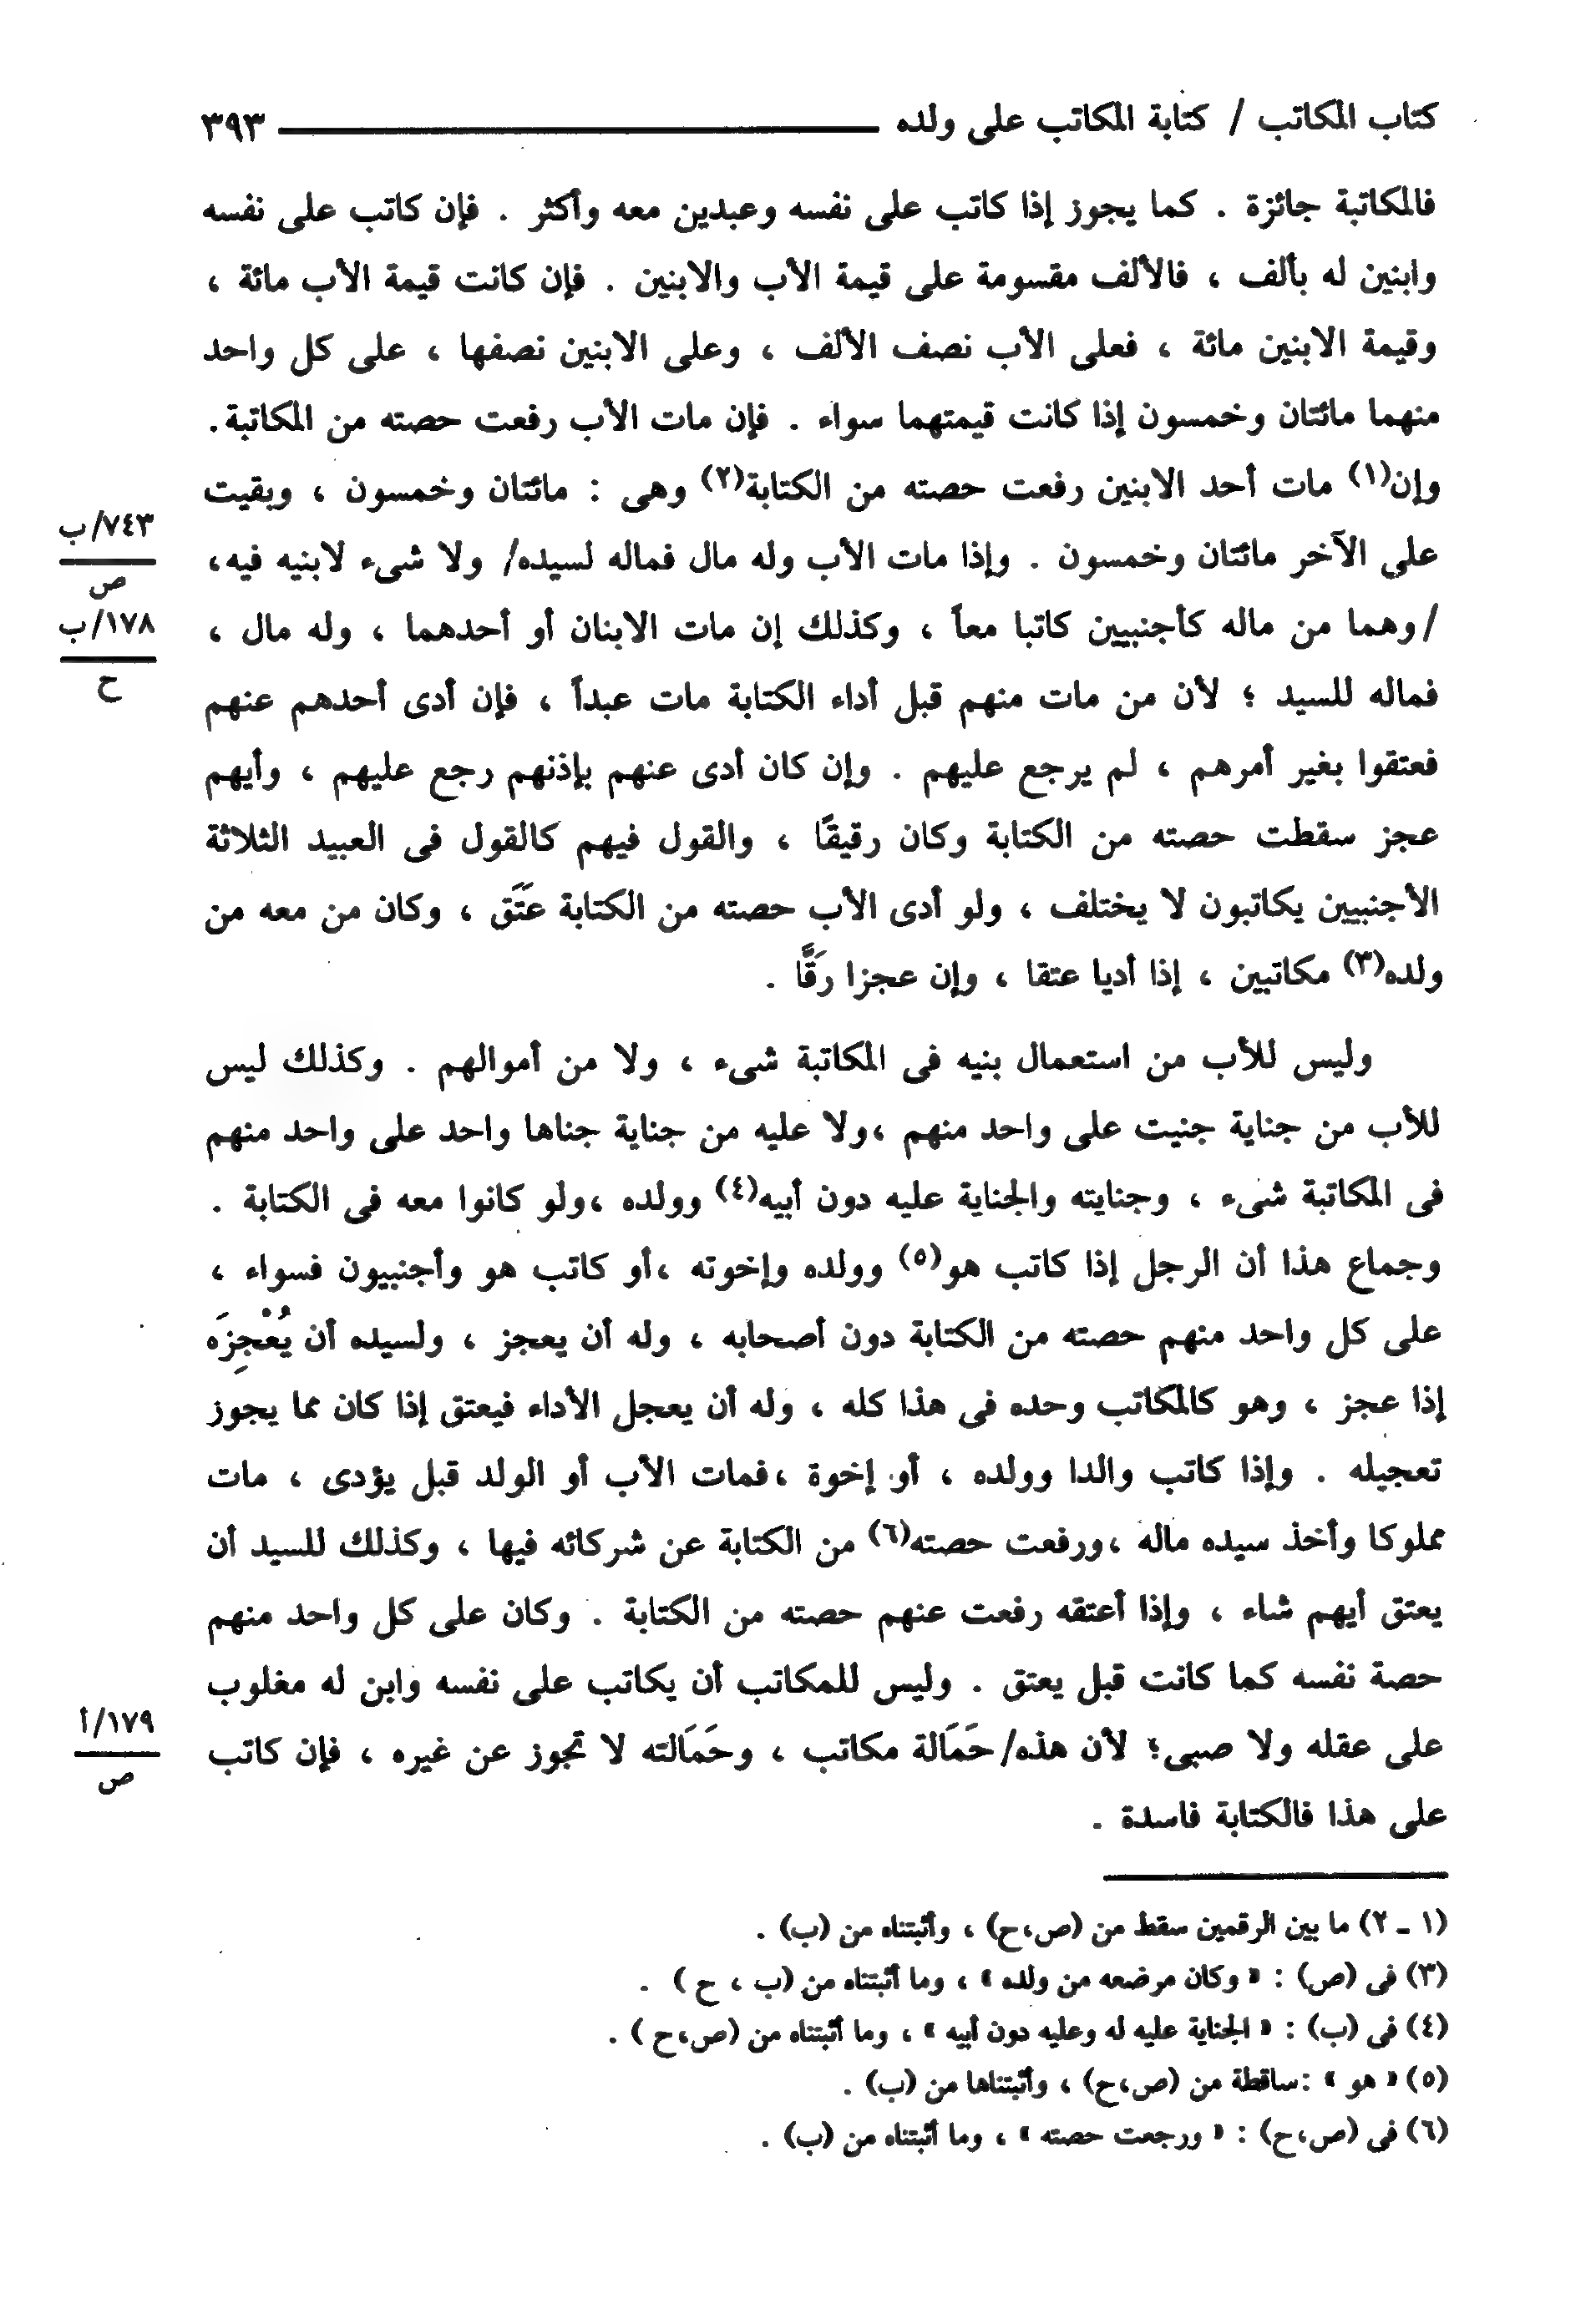 كتاب المكاتب / كتابة المكاتب على ولده ٣٩٣
فالمكاتبة جائزة . كما يجوز إذا كاتب على نفسه وعبدين معه وأكثر . فإن كاتب على نفسه
وابنين له بألف ، فالألف مقسومة على قيمة الأب والابنين . فإن كانت قيمة الأب مائة ،
وقيمة الابنين مائة ، فعلى الأب نصف الألف ، وعلى الابنين نصفها ، على كل واحد
منهما مائتان وخمسون إذا كانت قيمتهما سواء . فإن مات الأب رفعت حصته من المكاتبة .
وإن(١) مات أحد الابنين رفعت حصته من الكتابة(٢) وهى : مائتان وخمسون ، وبقيت
٧٤٣/ب
ص
على الآخر مائتان وخمسون . وإذا مات الأب وله مال فماله لسيده/ ولا شىء لابنيه فيه،
١٧٨/ب
ح
/وهما من ماله كأجنبيين كاتبا معاً ، وكذلك إن مات الابنان أو أحدهما ، وله مال ،
فماله للسيد ؛ لأن من مات منهم قبل أداء الكتابة مات عبداً ، فإن أدى أحدهم عنهم
فعتقوا بغير أمرهم ، لم يرجع عليهم . وإن كان أدى عنهم بإذنهم رجع عليهم ، وأيهم
عجز سقطت حصته من الكتابة وكان رقيقًا ، والقول فيهم كالقول فى العبيد الثلاثة
الأجنبيين يكاتبون لا يختلف ، ولو أدى الأب حصته من الكتابة عَتَق ، وكان من معه من
ولده(٣) مكاتبين ، إذا أديا عتقا ، وإن عجزا رَقَّا .
وليس للأب من استعمال بنيه فى المكاتبة شىء ، ولا من أموالهم . وكذلك ليس
للأب من جناية جنيت على واحد منهم ،ولا عليه من جناية جناها واحد على واحد منهم
فى المكاتبة شىء ، وجنايته والجناية عليه دون أبيه(٤) وولده ،ولو كانوا معه فى الكتابة .
وجماع هذا أن الرجل إذا كاتب هو(٥) وولده وإخوته ،أو كاتب هو وأجنبيون فسواء ،
على كل واحد منهم حصته من الكتابة دون أصحابه ، وله أن يعجز ، ولسيده أن يُعْجِزَه
إذا عجز ، وهو كالمكاتب وحده فى هذا كله ، وله أن يعجل الأداء فيعتق إذا كان مما يجوز
تعجيله . وإذا كاتب والدا وولده ، أو إخوة ،فمات الأب أو الولد قبل يؤدى ، مات
مملوكا وأخذ سيده ماله ،ورفعت حصته(٦) من الكتابة عن شركائه فيها ، وكذلك للسيد أن
يعتق أيهم شاء ، وإذا أعتقه رفعت عنهم حصته من الكتابة . وكان على كل واحد منهم
حصة نفسه كما كانت قبل يعتق . وليس للمكاتب أن يكاتب على نفسه وابن له مغلوب
١٧٩/أ
ص
على عقله ولا صبى؛ لأن هذه/ حَمَالة مكاتب ، وحَمَالته لا تجوز عن غيره ، فإن كاتب
على هذا فالكتابة فاسدة .
(١ ـ ٢) ما بين الرقمين سقط من (ص،ح) ، وأثبتناه من (ب) .
(٣) فى (ص) : « وكان مرضعه من ولده » ، وما أثبتناه من (ب ، ح ) .
(٤) فى (ب) : « الجناية عليه له وعليه دون أبيه » ، وما أثبتناه من (ص،ح ) .
(٥) « هو » :ساقطة من (ص،ح) ، وأثبتناها من (ب) .
(٦) فى (ص،ح) : « ورجعت حصته » ، وما أثبتناه من (ب) .